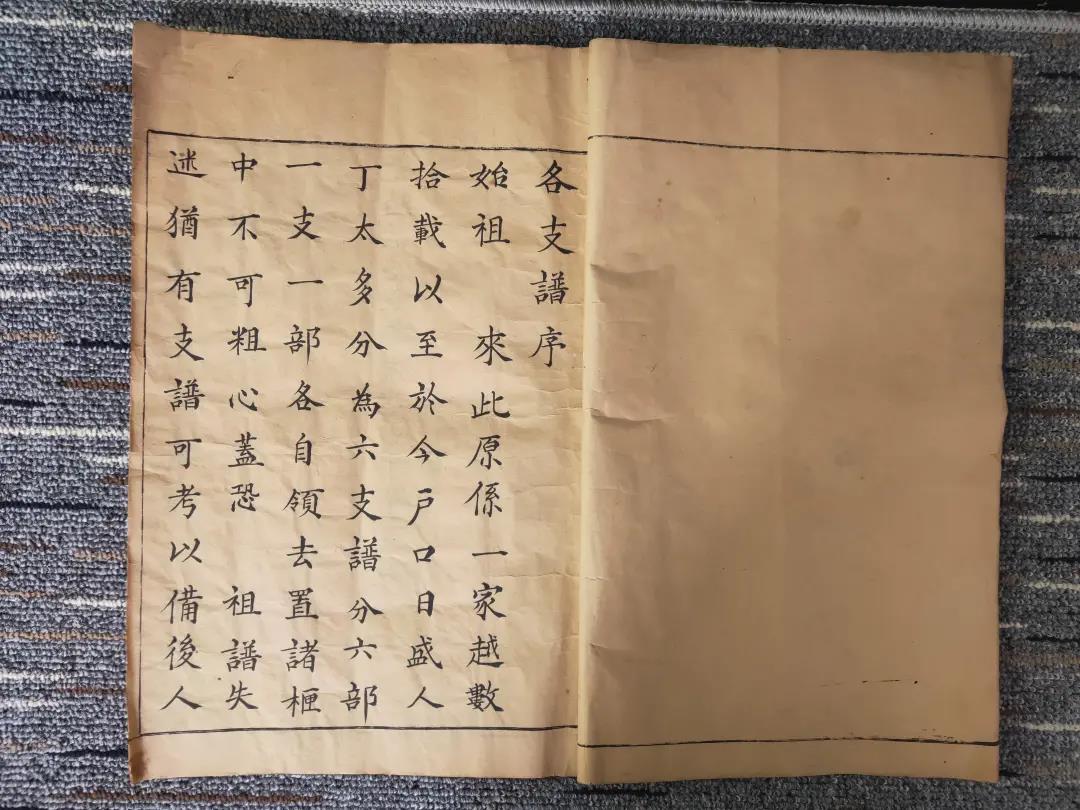 各支譜序
始祖　來此原係一家越數
拾載以至於今戶口日盛人
丁太多分為六支譜分六部
一支一部各自領去置諸柜
中不可粗心蓋恐　祖譜失
迷猶有支譜可考以備後人